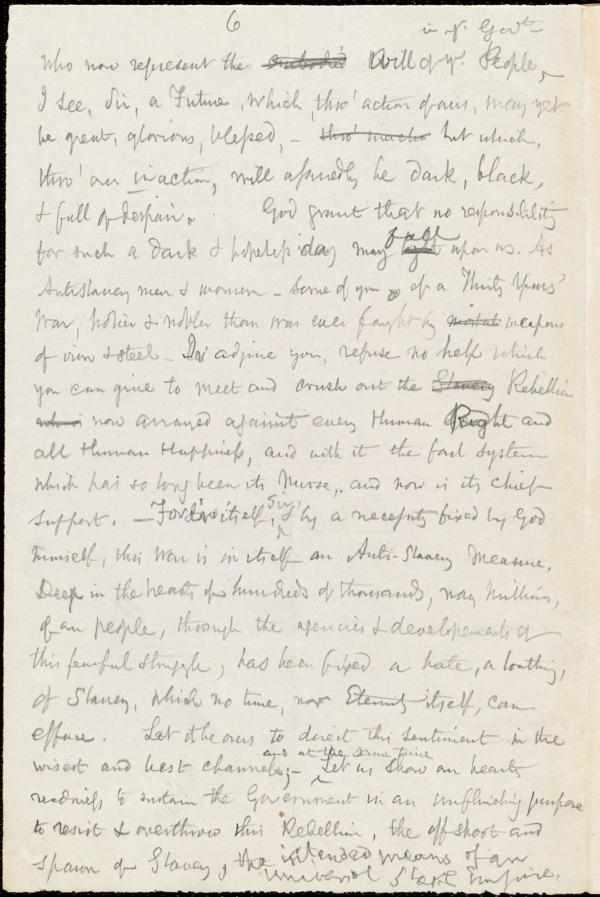 6
in ye. Govt.
who now represent the Will of ye. People,
I see, Sir, a Future, which, thro' action of ours, may yet
be great, glorious, blessed, – thro' but which,
thro' our inaction, will assuredly be dark, black,
& full of despair. God grant that no responsibility
for such a dark & hopeless day may fall upon us. As
Antislavery men & women – some of you of a Thirty Years'
War, holier & nobler than was ever fought by mortal weapons
of iron & steel – I adjure you, refuse no help which
you can give to meet and crush out the Slavery Rebellion
now arrayed against every Human Right and
all Human Happiness, and with it the foul system
which has so long been its Nurse, and now is its chief
support. – For in itself, Sir, by a necessity fixed by God
himself, this War is in itself an Anti-Slavery measure.
Deep in the hearts of hundreds of thousands, nay millions,
of our people, through the agencies & developements of
this fearful struggle, has been fixed a hate, a loathing,
of Slavery, which no time, nor Eternity itself, can
efface. Let it be ours to direct this sentiment in the
and at the same time
wisest and best channels; – Let us show our hearty
readiness to sustain the Government in an unflinching purpose
to resist & overthrow this Rebellion, the offshoot and
spawn of Slavery, the intended means of an
universal Slave Empire.